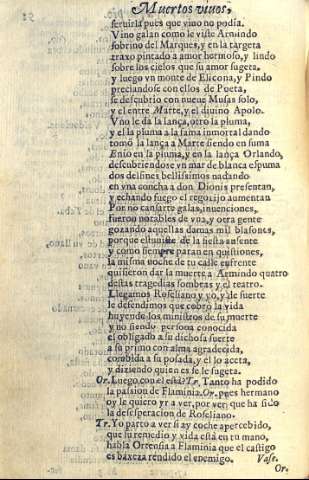 Muertos viuos,
seruirla pues que vino no podia.
Vino galan como le viste Armindo
sobrino del Marques, y en la targeta
traxo pintado a amor hermoso, y lindo
sobre los cielos que su amor sugeta,
y luego vn monte de Elicona, y Pindo
preciandose con ellos de Poeta,
se descubrio con nueue Musas solo,
y el entre Marte, y el diuino Apolo.
Vno le da la lança, otro la pluma,
y el la pluma a la fama inmortal dando
tomò la lança a Marte siendo en suma
Enio en la pluma, y en la lança Orlando,
descubriendose vn mar de blanca espuma
dos delfines bellissimos nadando
en vna concha a don Dionis presentan,
y echando fuego el regozijo aumentan
Por no cansarte galas, inuenciones,
fueron notables de vna, y otra gente
gozando aquellas damas mil blasones,
porque estuuiste de la fiesta ausente
y como siempre paran en quistiones,
la misma noche de tu calle enfrente
quisieron dar la muerte a Armindo quatro
destas tragedias sombras, y el teatro.
Llegamos Roseliano y yo, y ale suerte
le defendimos que cobrò la vida
huyendo los ministros de su muerte
y no siendo persona conocida
el obligado a su dichosa suerte
a su primo con alma agradecida,
combida a su posada, y el lo aceta,
y diziendo quien es se le sugeta.
Or. Luego con el està? Tr. Tanto ha podido
la passion de Flaminia. Or. pues hermano
oy le quiero yr a ver, por ver que ha sido
la desesperacion de Roseliano.
Tr. Yo parto a ver si ay coche apercebido,
que su remedio y vida està en tu mano,
habla Ortensia a Flaminia que el castigo
es baxeza rendido el enemigo. Vase.
Or.